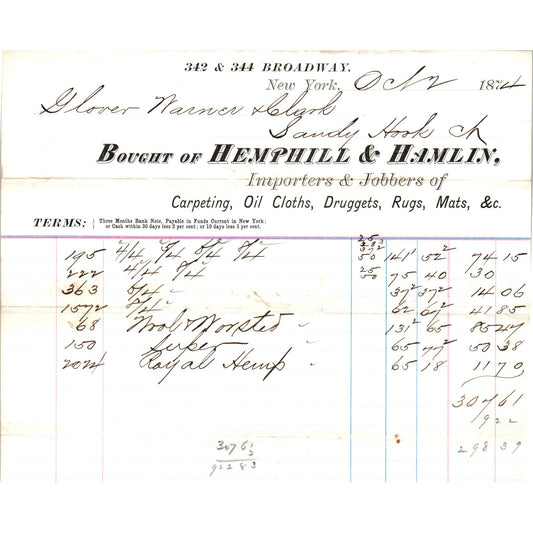 342 & 344 BROADWAY.
New York, Oct 2 1874
Glover Warner & Clark
Sandy Hook Ct
BOUGHT OF HEMPHILL & HAMLIN,
Importers & Jobbers of
Carpeting, Oil Cloths, Druggets, Rugs, Mats, &c.
TERMS: { Three Months Bank Note, Payable in Funds Current in New York; or Cash within 30 days less 2 per cent; or 10 days less 3 per cent.
195 4/4 5/4 6/4 8/4 50 141 52² 74 15
222 4/4 8/4 25 50 75 40 30
363 5/4 " 37² 37² 14 06
1572 6/4 " 62 67² 41 85
68 Wool & Worsted " 131² 65 85 47
150 Super " 65 77² 50 38
2024 Royal Hemp " 65 18 11 70
307 61
9 22
298 39
3076
92283